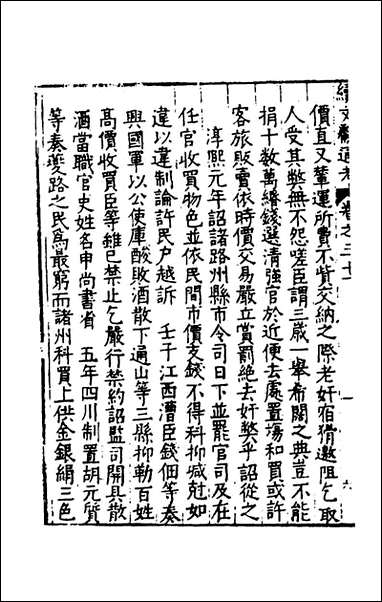 續文獻通考 卷之三十
價直又輦運所費不貲交納之際老奸宿猾邀阻乞取
人受其弊無不怨嗟臣謂三歲一舉希闊之典豈不能
捐十數萬緡錢選清強官於近便去處置場和買或許
客旅販賣依時價交易嚴立賞罰絶去奸弊乎詔從之
淳熙元年詔諸路州縣市令司日下並罷官司及在
任官收買物色並依民間市價支錢不得科抑減尅如
違以違制論許民户越訴 壬午江西漕臣錢佃等奏
興國軍以公使庫酸敗酒散下通山等三縣抑勒百姓
高價收買臣等雖已禁止乞嚴行禁約詔監司開具散
酒當職官吏姓名申尚書省 五年四川制置胡元質
等奏夔路之民爲最窮而諸州科買上供金銀絹三色